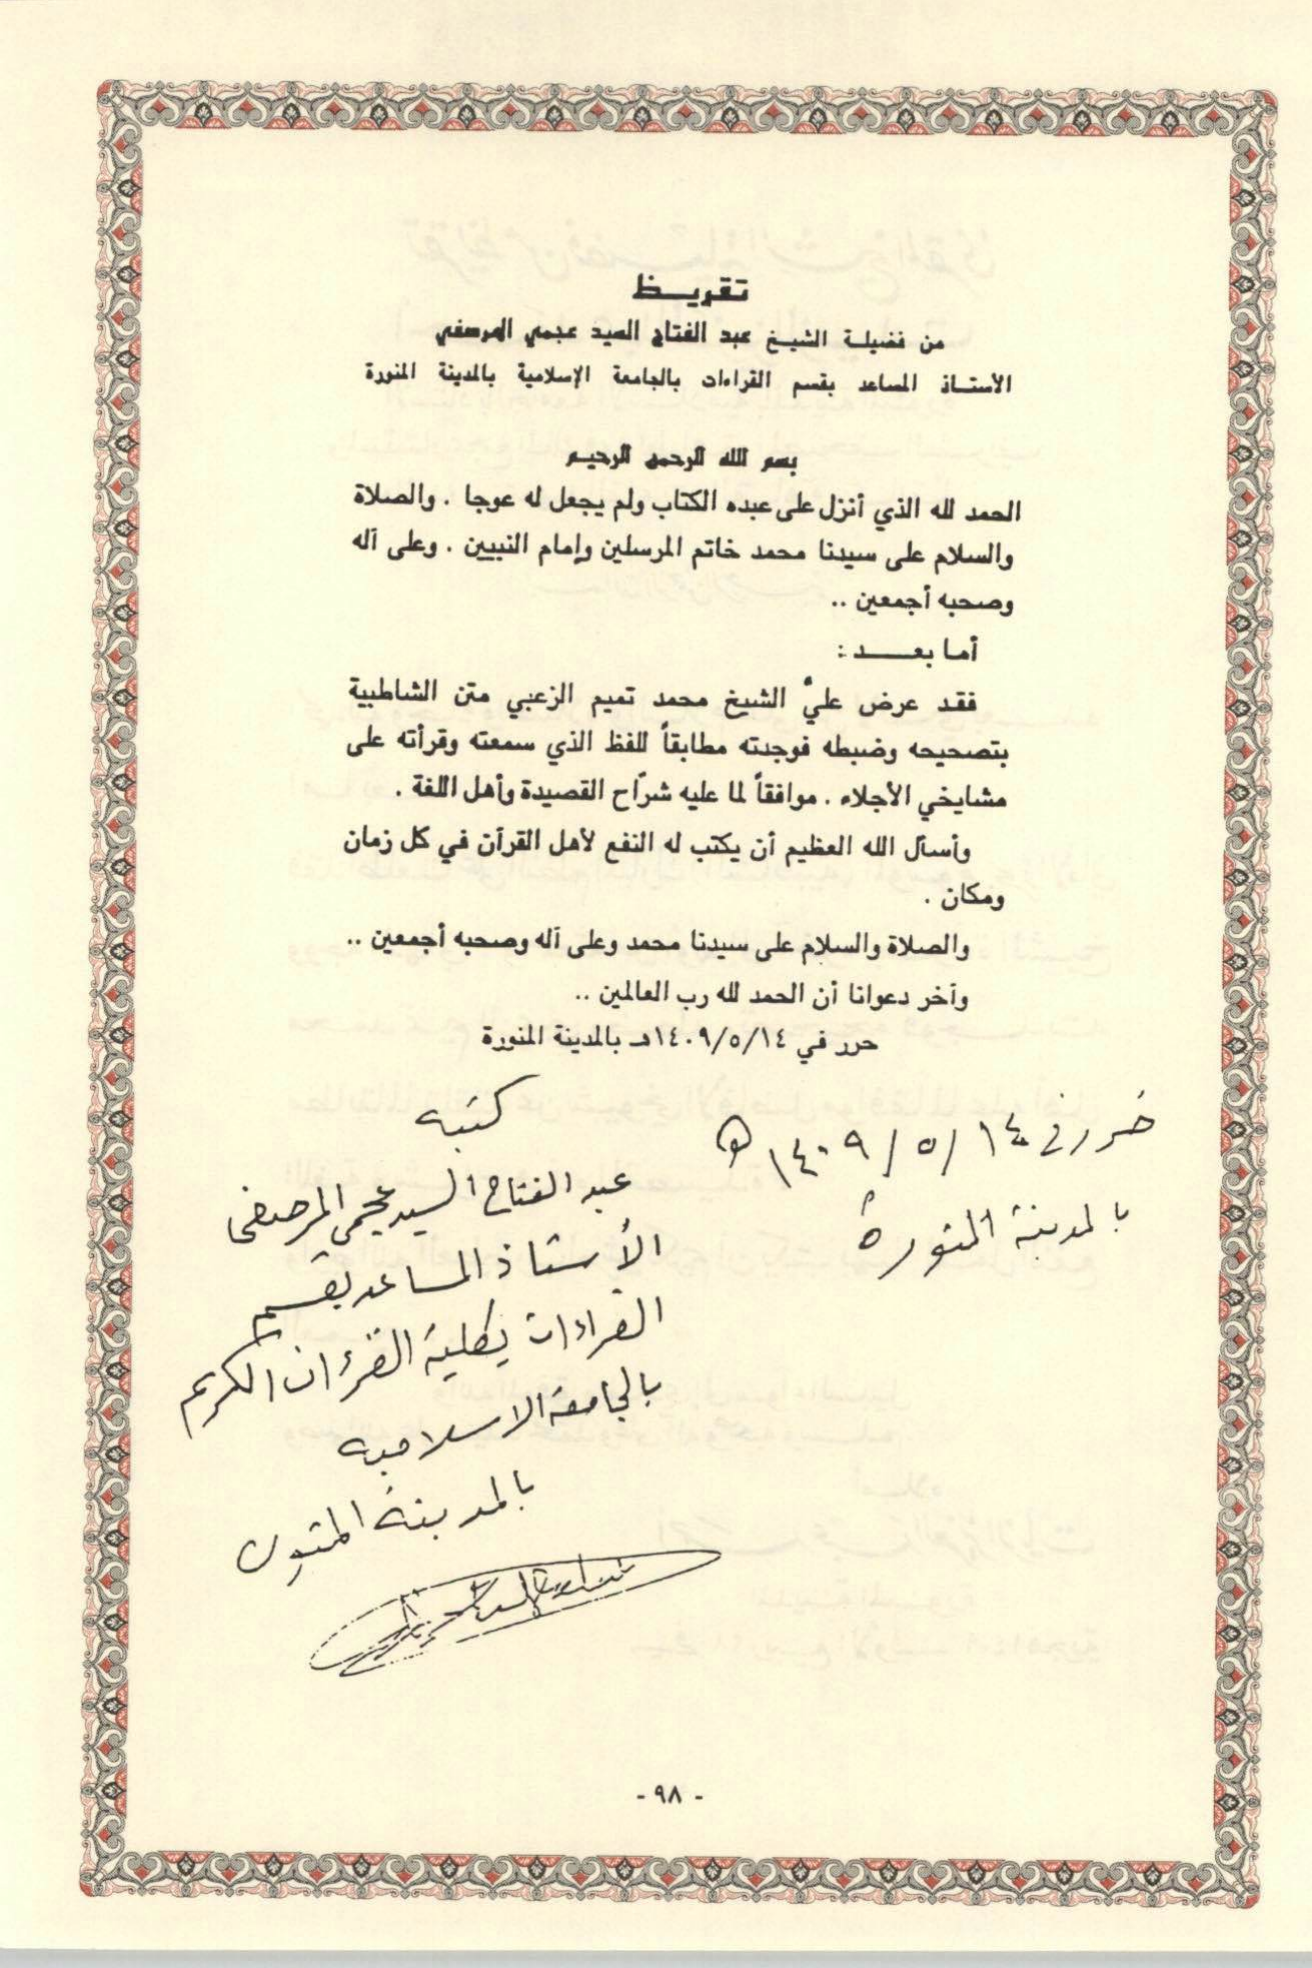 تقريظ
من فضيلة الشيخ عبد الفتاح السيد عجمي المرصفي
الأستاذ المساعد بقسم القراءات بالجامعة الإسلامية بالمدينة المنورة
بسم الله الرحمن الرحيم
الحمد لله الذي أنزل على عبده الكتاب ولم يجعل له عوجا . والصلاة
والسلام على سيدنا محمد خاتم المرسلين وإمام النبيين . وعلى آله
وصحبه أجمعين ..
أما بعد :
فقد عرض عليّ الشيخ محمد تميم الزعبي متن الشاطبية
بتصحيحه وضبطه فوجدته مطابقاً للفظ الذي سمعته وقرأته على
مشايخي الأجلاء . موافقاً لما عليه شرّاح القصيدة وأهل اللغة .
وأسأل الله العظيم أن يكتب له النفع لأهل القرآن في كل زمان
ومكان .
والصلاة والسلام على سيدنا محمد وعلى آله وصحبه أجمعين ..
وآخر دعوانا أن الحمد لله رب العالمين ..
حرر في ١٤٠٩/٥/١٤هـ بالمدينة المنورة
حرر في ١٤٠٩/٥/١٤ هـ
بالمدينة المنورة
كتبه
عبد الفتاح السيد عجمي المرصفي
الأستاذ المساعد بقسم
القراءات بكلية القرءان الكريم
بالجامعة الاسلامية
بالمدينة المنورة
- ٩٨ -